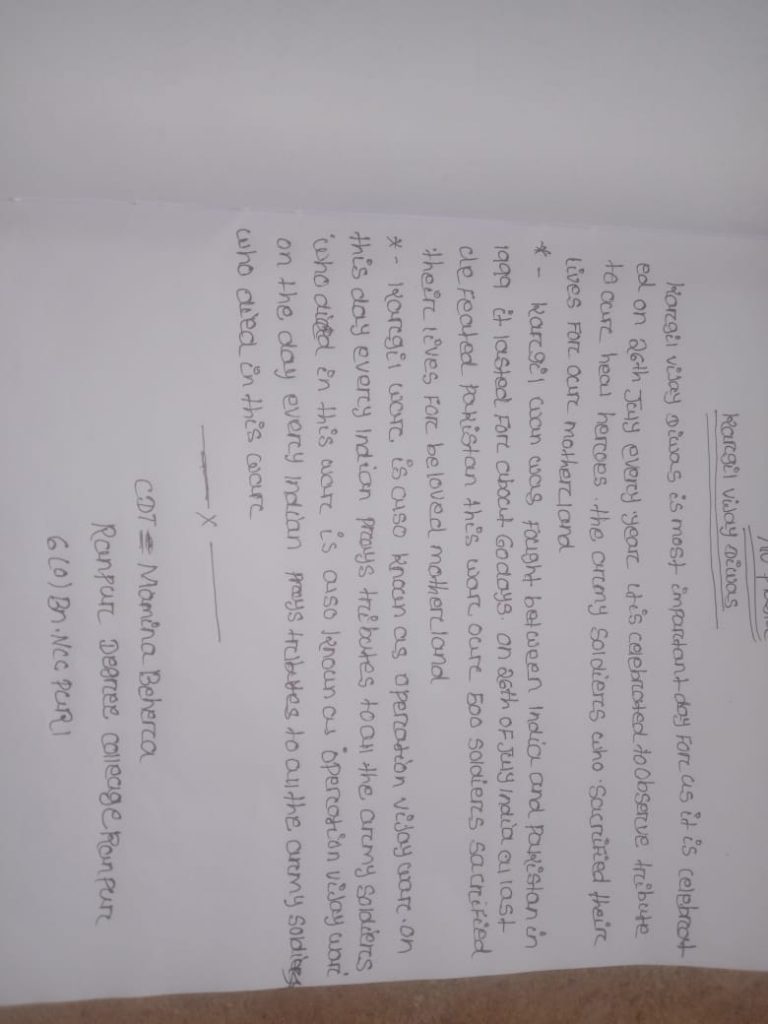 Kargil vijay Diwas
Kargil vijay Diwas is most impardant day Forc us it is celebrat-
ed on 26th July every yearc it is celebrcated to observe tribute
to ourc heal herioes. the arcmy soldiercs who sacrified theirc
lives Forc ourc mothercland
* - Kargil wan was fought between India and pakistan in
1999 it lasted Forc about 60 days. on 26th oF July India at last
deFeated pakistan this warc ourc 500 soldiercs sacrified
theirc lives Forc beloved mothercland
* - Karcgil warc is also known as opercation vijay warc. on
this day every Indian prays tributes to all the arcmy soldiercs
who died in this warc is also known as opercation vijay warc
on the day every Indian prays tributes to all the arcmy soldiers
who died in this warc
—— x ——
CDT = Mamina Beherca
Ranpurc Degree colleage, Ranpurc
6(0) Bn. Ncc puri